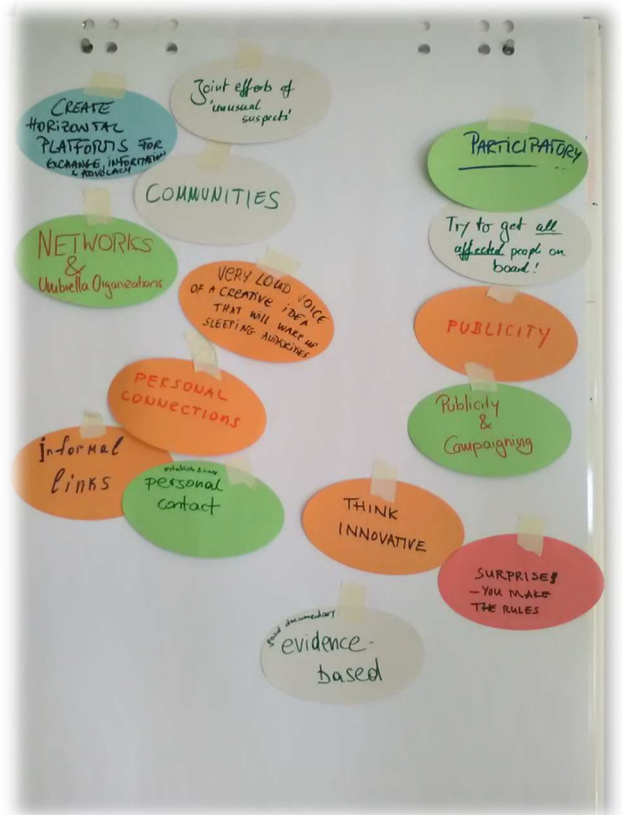 Joint efforts of
'unusual
suspects'
CREATE
HORIZONTAL
PLATFORMS FOR
EXCHANGE, INFORMATION
& ADVOCACY
COMMUNITIES
NETWORKS
&
Umbrella Organizations
VERY LOUD VOICE
OF A CREATIVE IDEA
THAT WILL WAKE UP
SLEEPING AUTHORITIES
PERSONAL
CONNECTIONS
informal
links
personal
contact
PARTICIPATORY
Try to get all
affected people on
board!
PUBLICITY
Publicity
&
Campaigning
THINK
INNOVATIVE
SURPRISE!
- YOU MAKE
THE RULES
documentary
evidence-
based